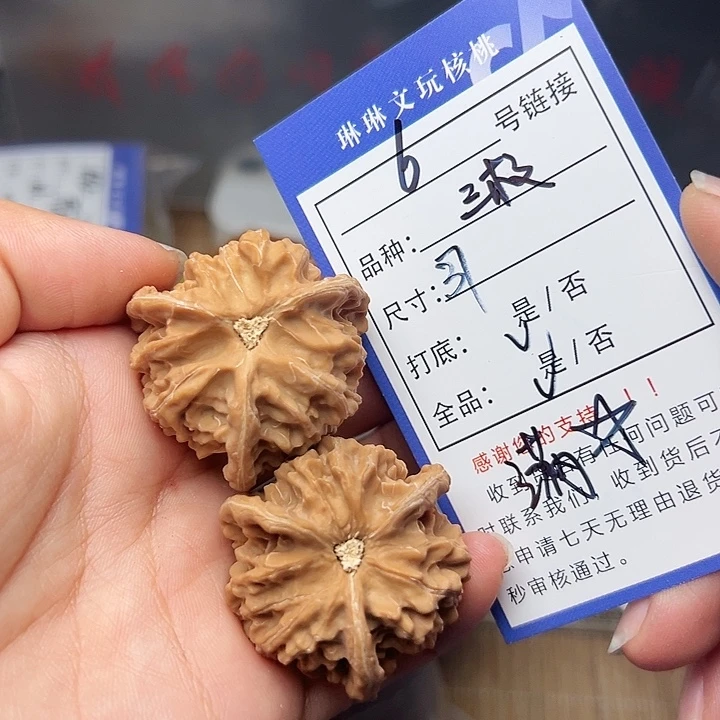 琳琳文玩核桃
6 号链接
品种： 三棱
尺寸：
打底： 是/否
全品： 是/否
感谢您的支持！！
满☆
收到 有任何问题可
时联系我们，收到货后不
申请七天无理由退货
秒审核通过。